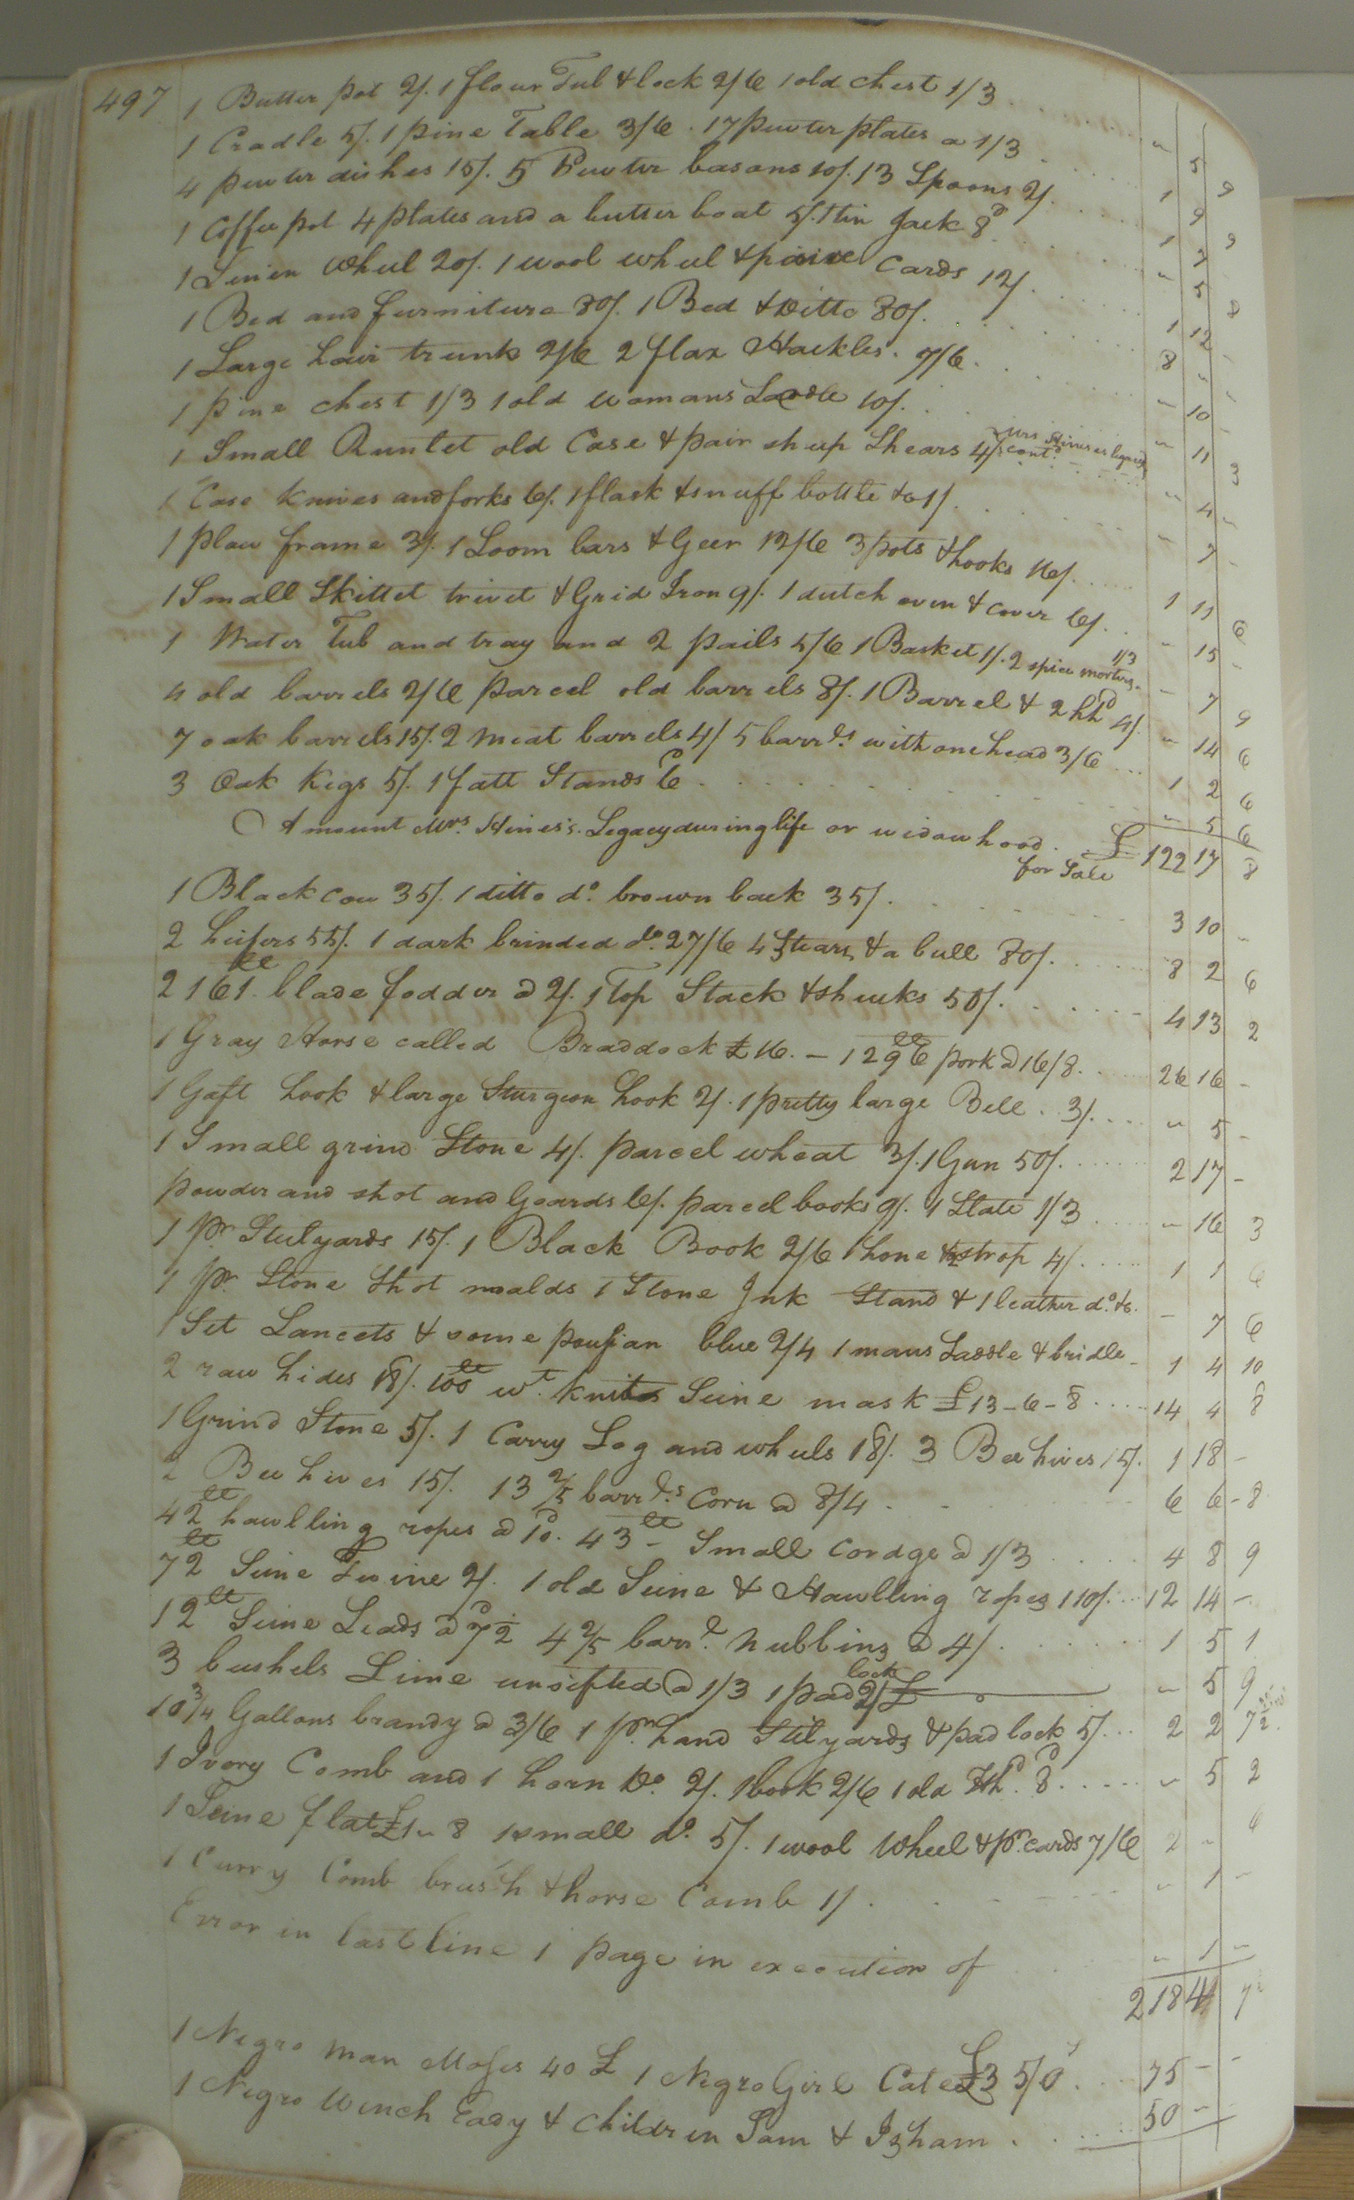 497
1 Butter pot 2/. 1 flour Tub & lock 2/6 1 old chest 1/3 " 5 9
1 Cradle 5/. 1 pine Table 3/6. 17 pewter plates a 1/3 1 9 9
4 pewter dishes 15/. 5 Pewter basons 10/. 13 Spoons 2/. 1 7
1 Coffee pot 4 plates and a butter boat 5/. 1 tin Jack 8d " 5 8
1 Linen Wheel 20/. 1 wool wheel & paire Cards 12/. 1 12 -
1 Bed and furniture 80/. 1 Bed & Ditto 80/. 8 " -
1 Large hair trunk 2/6 2 flax Hackles. 7/6. - 10 -
1 pine chest 1/3 1 old womans Saddle 10/. " 11 3
1 Small Runlet old Case & pair sheep Shears 4/ " 4 -
1 Case knives and forks 6/. 1 flask & snuff bottle &c 1/. - 7 -
1 plow frame 3/. 1 Loom bars & Geer 12/6 3 pots & hooks 16/. 1 11 6
1 Small Skittet trivet & Grid Iron 9/. 1 dutch oven & cover 6/. - 15 -
1 Water Tub and tray and 2 pails 5/6 1 Basket 1/. 2 spice mortars 1/3 - 7 9
4 old barrels 2/6 parcel old barrels 8/. 1 Barrel & 2 hhd 4/. " 14 6
7 oak barrels 15/. 2 meat barrels 4/ 5 barrls with one head 3/6 1 2 6
3 Oak Kegs 5/. 1 fatt Stands 6d " 5 6
Amount Mrs. Hines's. Legacy during life or widowhood. £ 122 17 8
for Sale
1 Black cow 35/. 1 ditto do. brown back 35/. 3 10 -
2 heifers 55/. 1 dark brinded do. 27/6 4 Stears & a bull 80/. 8 2 6
2161 lb blade fodder a 2/. 1 Top Stack & shuks 50/. 4 13 2
1 Gray Horse called Braddock £16. - 1296 lb pork a 16/8. 26 16 -
1 Gaft hook & large Sturgeon hook 2/. 1 pretty large Bell. 3/. " 5 -
1 Small grind Stone 4/. parcel wheat 3/. 1 Gun 50/. 2 17 -
powder and shot and Goards 6/. parcel books 9/. 1 Slate 1/3 " 16 3
1 pr Stilyards 15/. 1 Black Book 2/6 1 hone & strop 4/. 1 1 6
1 pr. Stone Shot moalds 1 Stone Ink Stand & 1 leather do. &c. - 7 6
1 Set Lancets & some prusian blue 2/4 1 mans Saddle & bridle - 1 4 10
2 raw hides 18/. 100 lb wt. knited Seine mask £13-6-8 14 4 8
1 Grind Stone 5/. 1 Carry Log and wheels 18/. 3 Bee hives 15/. 1 18 -
2 Bee hives 15/. 13 2/5 barrls. Corn a 8/4. 6 6 - 8
42 lb hawlling ropes a 10d. 43 lb - Small cordge a 1/3 4 8 9
72 lb Seine Twine 2/. 1 old Seine & Hawlling ropes 110/. 12 14 -
12 lb Seine Leads a 7½d 4 2/5 barrl. nubbins a 4/. 1 5 1
3 bushels Lime unsifted a 1/3 1 pad lock 2/ " 5 9
10¾ Gallons brandy a 3/6 1 pr. hand Stilyards & pad lock 5/. 2 2 7½
1 Ivory Comb and 1 horn Do. 2/. 1 book 2/6 1 old hhd. 8d - 5 2
1 Seine flat £1 " 8 1 small do. 5/. 1 wool Wheel & pr. cards 7/6 2 - 6
1 Curry Comb brush & horse Comb 1/. " 1 -
Error in last line 1 page in execution of " 1 -
218 4 7
1 Negro man Moses 40 £ 1 Negro Girl Cate 75 - -
1 Negro Winch Eady & Children Sam & Isham 50 - -